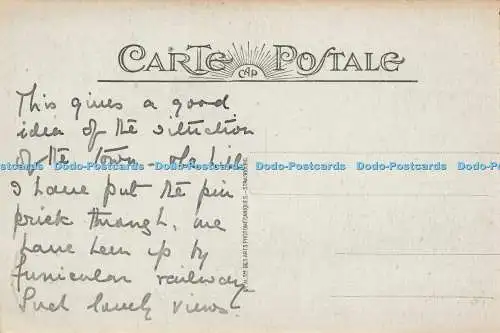 CARTE POSTALE
CAP
This gives a good
idea of the situction
of the town - ole hill
I have put the pin
prick through, we
have been up by
funicular railway
Such lovely views.
Dodo-Postcards Dodo-Postcards Dodo-Postcards Dodo-Postcards Dodo-Postcards